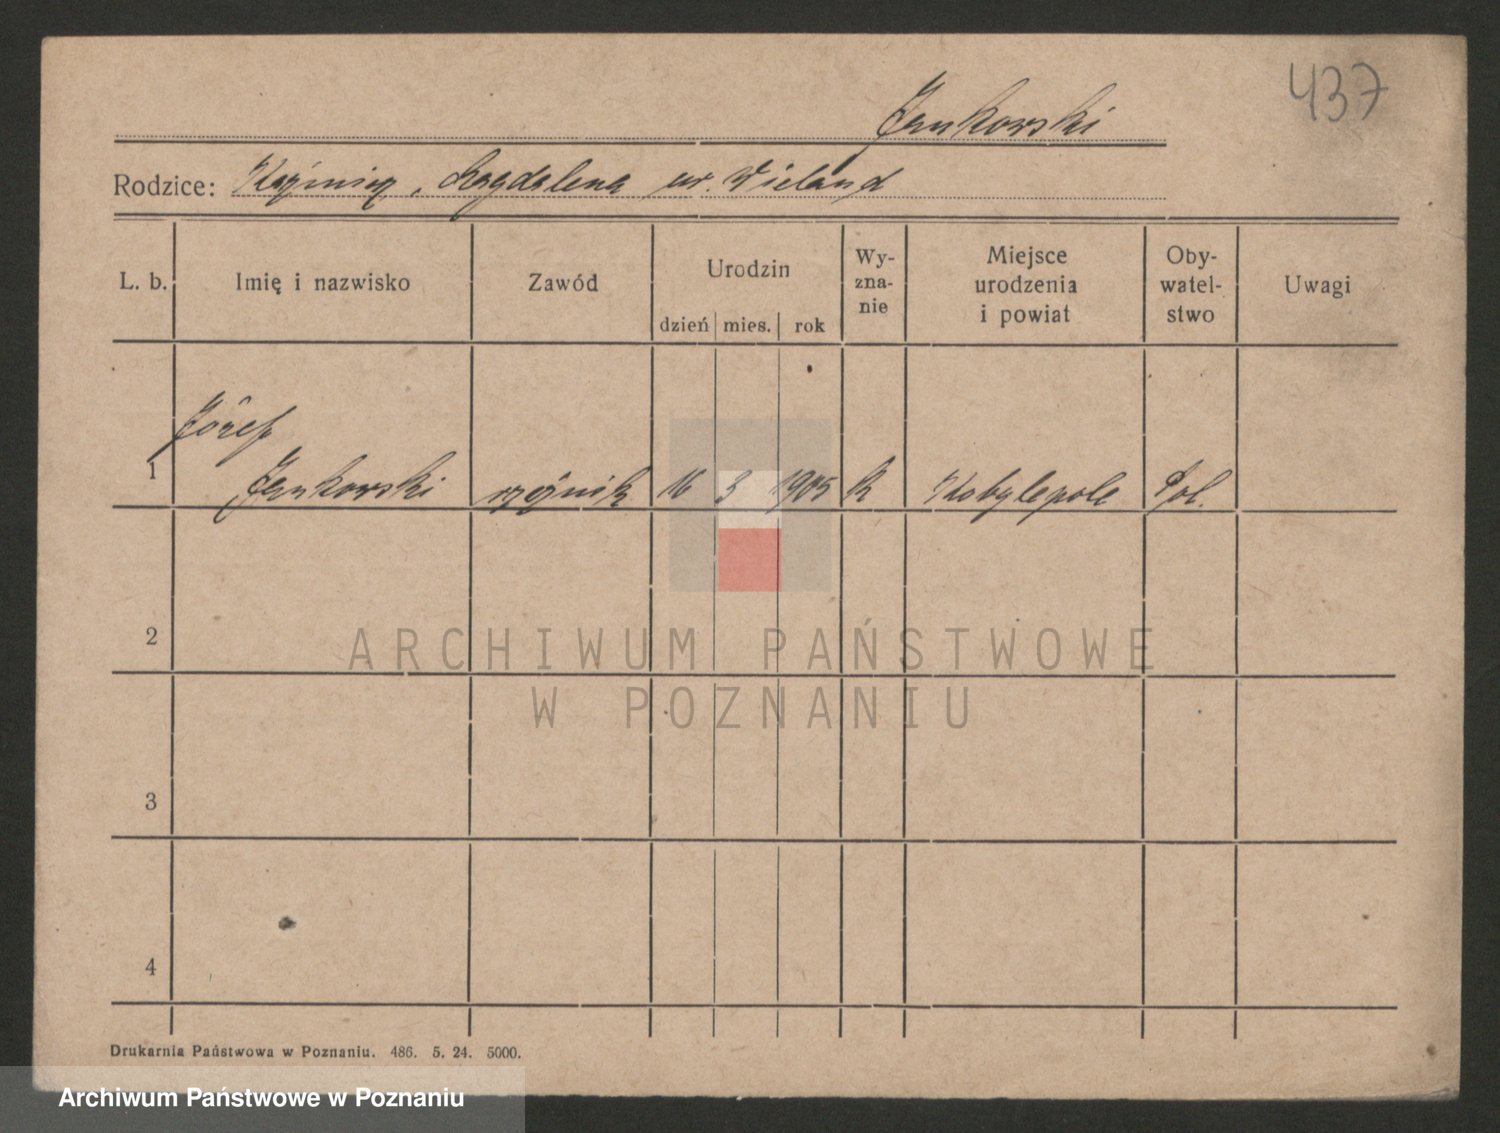 437
Jankowski
Rodzice: Kaźmierz, Magdalena ur. Wieland
L. b. Imię i nazwisko Zawód Urodzin dzień mies. rok Wy-zna-nie Miejsce urodzenia i powiat Oby-watel-stwo Uwagi
Józef
1 Jankowski rzeźnik 16 3 1905 k Kobylepole Pol.
2
ARCHIWUM PAŃSTWOWE
W POZNANIU
3
4
Drukarnia Państwowa w Poznaniu. 486. 5. 24. 5000.
Archiwum Państwowe w Poznaniu